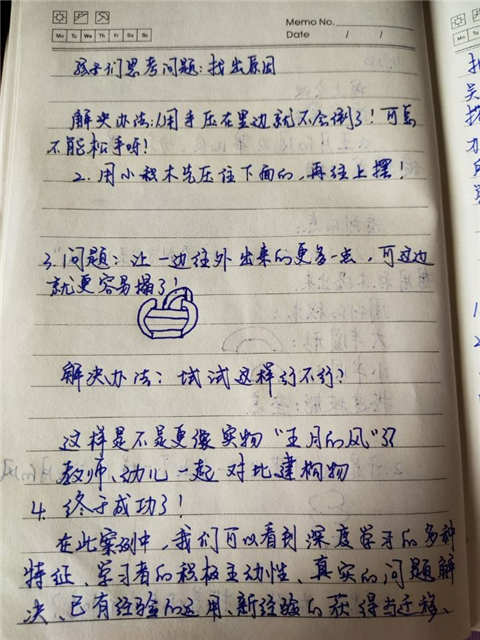 Memo No.
Date / /
Mo Tu We Th Fr Sa Su
孩子们思考问题:找出原因
解决办法:1.用手压在里边就不会倒了!可是
不能松手呀!
2.用小积木先压住下面的,再往上摆!
3.问题:让一边往外出来的更多一点,可这边
就更容易塌了!
解决办法:试试这样行不行?
这样是不是更像实物“五月的风”了
教师、幼儿一起对比建构物
4.终于成功了!
在此案例中,我们可以看到深度学习的多种
特征、学习者的积极主动性、真实的问题解
决、已有经验的运用、新经验的获得与迁移、